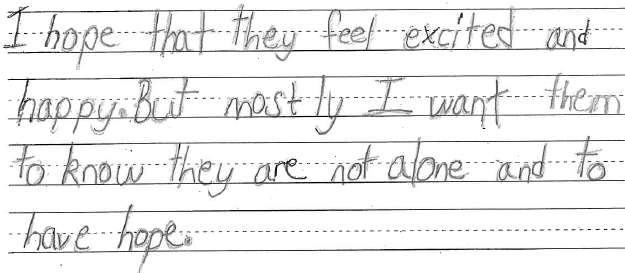 I hope that they feel excited and
happy. But mostly I want them
to know they are not alone and to
have hope.